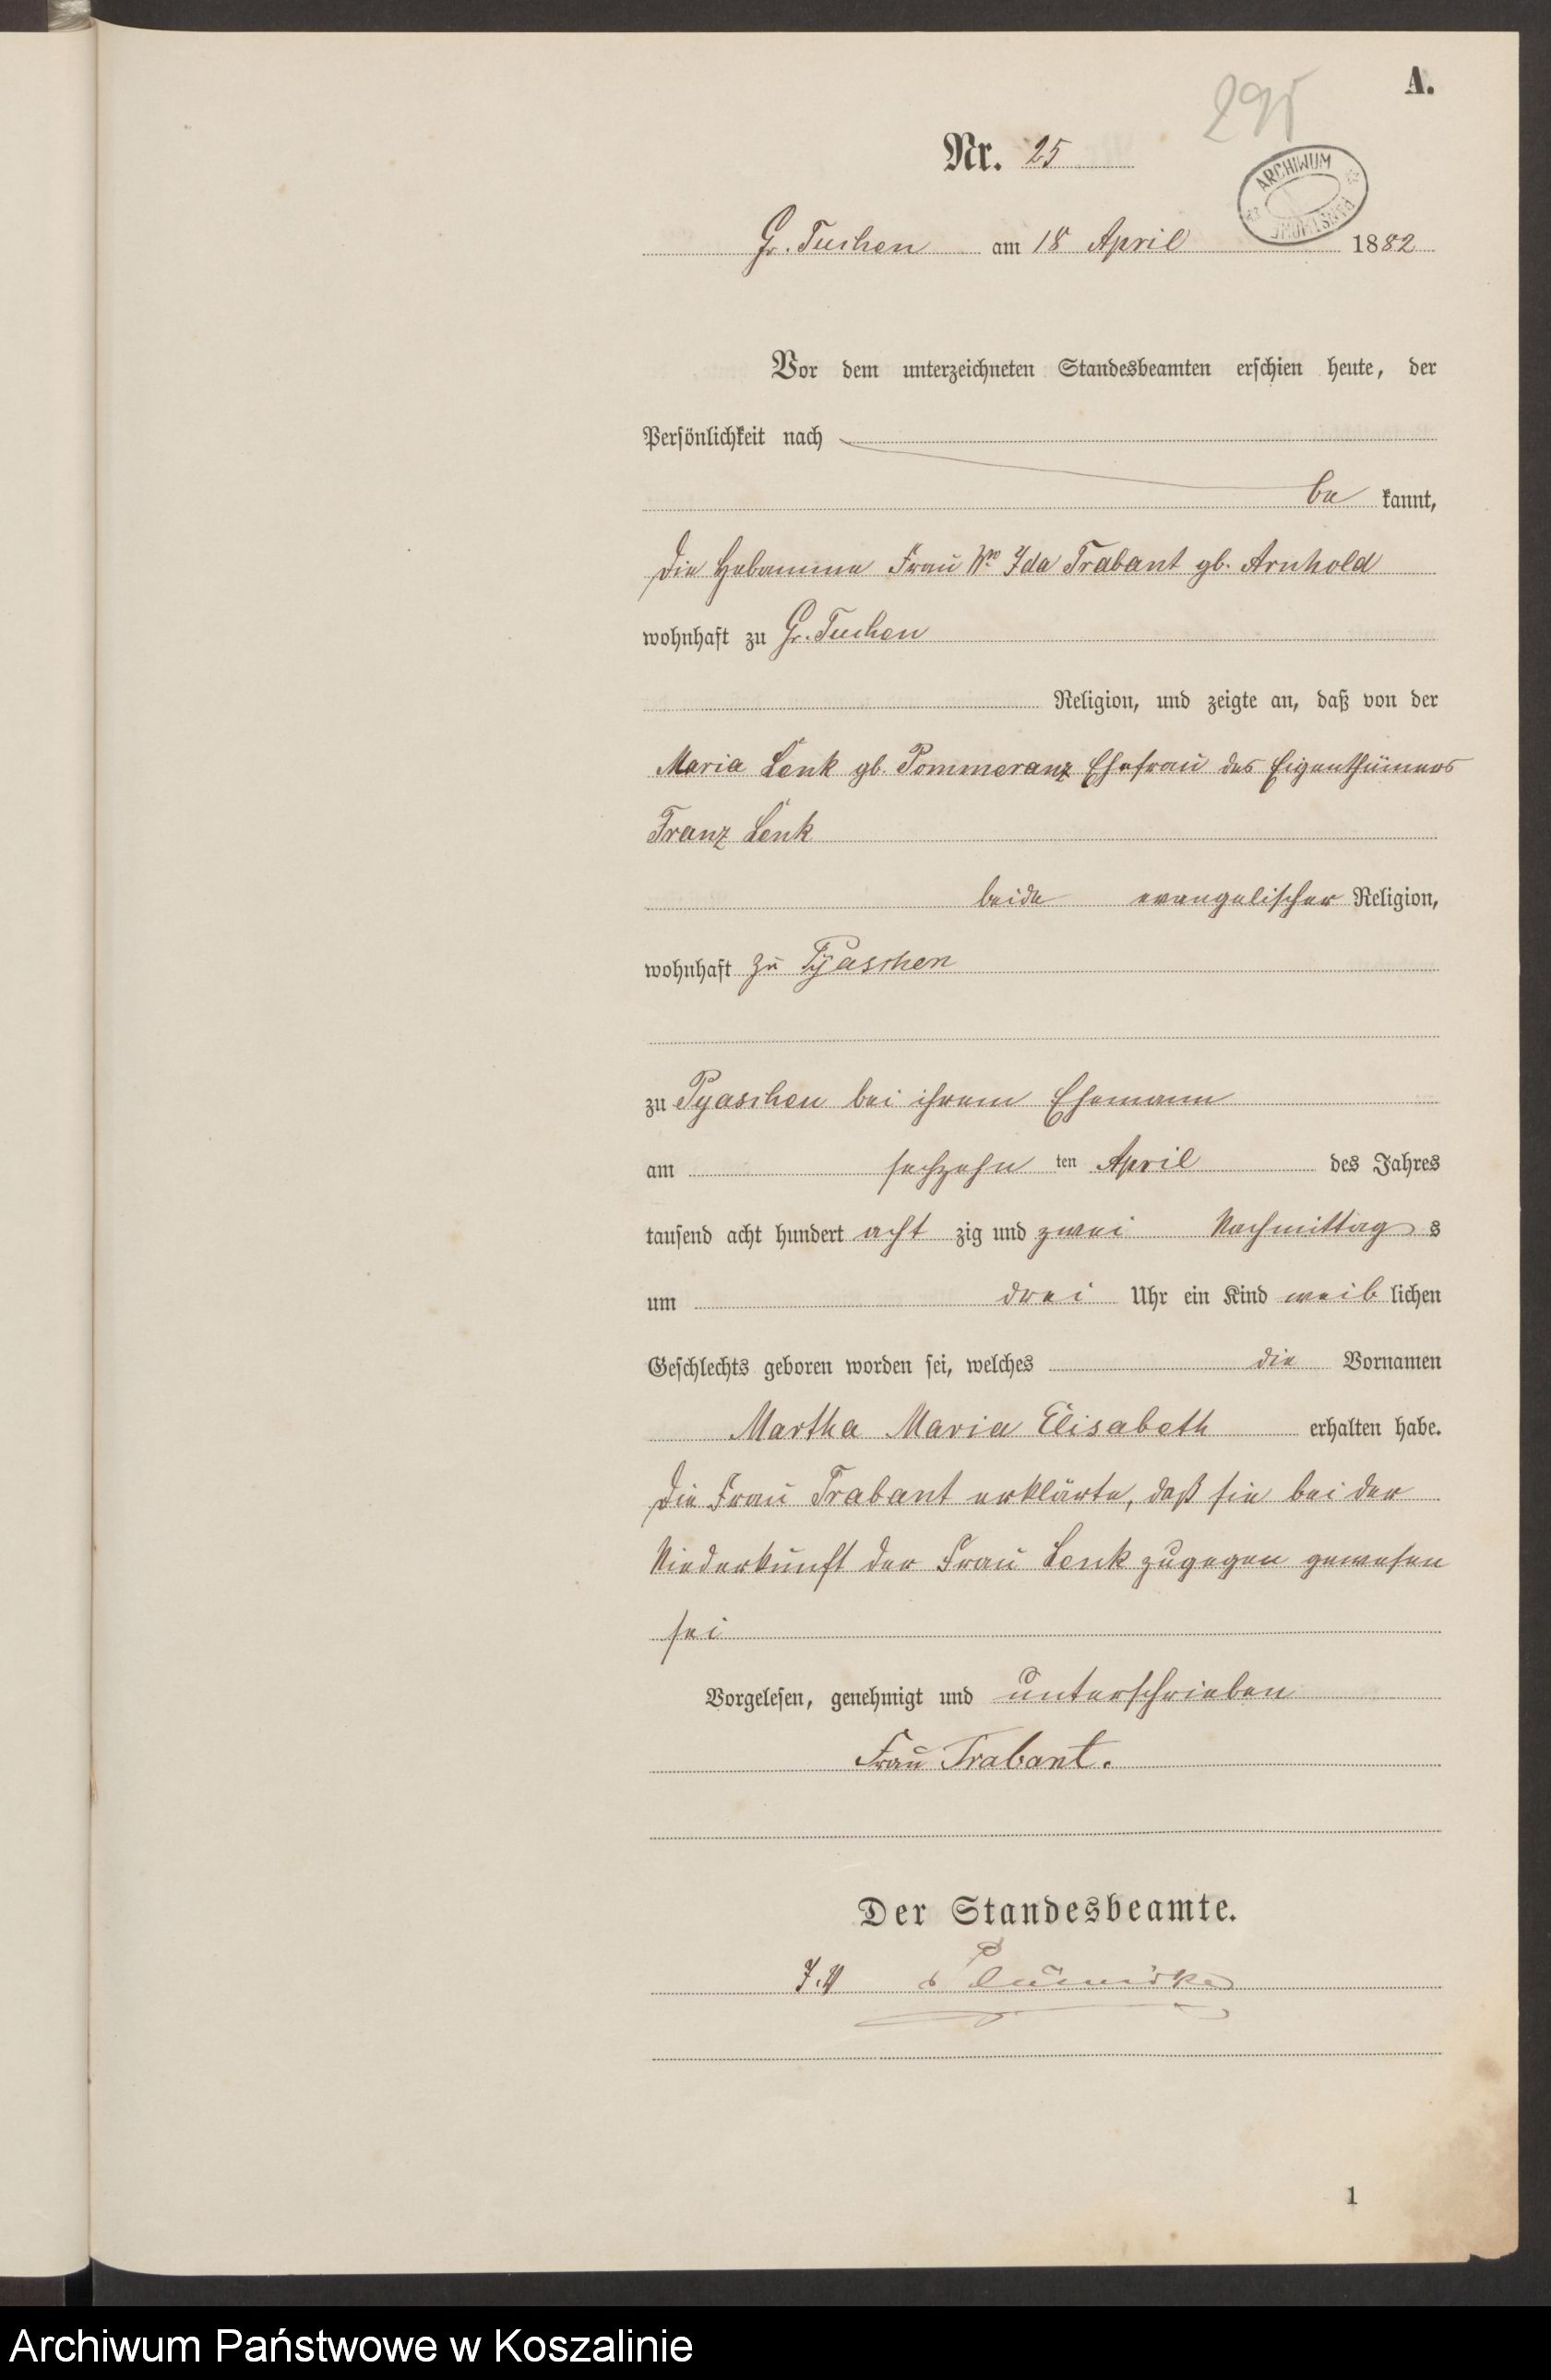 A.
295
Nr. 25
ARCHIWUM PAŃSTWOWE
Gr. Tuchen am 18 April 1882
Vor dem unterzeichneten Standesbeamten erschien heute, der
Persönlichkeit nach
be kannt,
die Hebamme Frau Ww Ida Trabant gb. Arnhold
wohnhaft zu Gr. Tuchen
Religion, und zeigte an, daß von der
Maria Lenk gb. Pommeranz Ehefrau des Eigenthümers
Franz Lenk
beide evangelischer Religion,
wohnhaft zu Pyaschen
zu Pyaschen bei ihrem Ehemann
am sechzehn ten April des Jahres
tausend acht hundert acht zig und zwei Nachmittag s
um drei Uhr ein Kind weib lichen
Geschlechts geboren worden sei, welches die Vornamen
Martha Maria Elisabeth erhalten habe.
Die Frau Trabant erklärte, daß sie bei der
Niederkunft der Frau Lenk zugegen gewesen
sei
Vorgelesen, genehmigt und unterschrieben
Frau Trabant.
Der Standesbeamte.
I.V
1
Archiwum Państwowe w Koszalinie